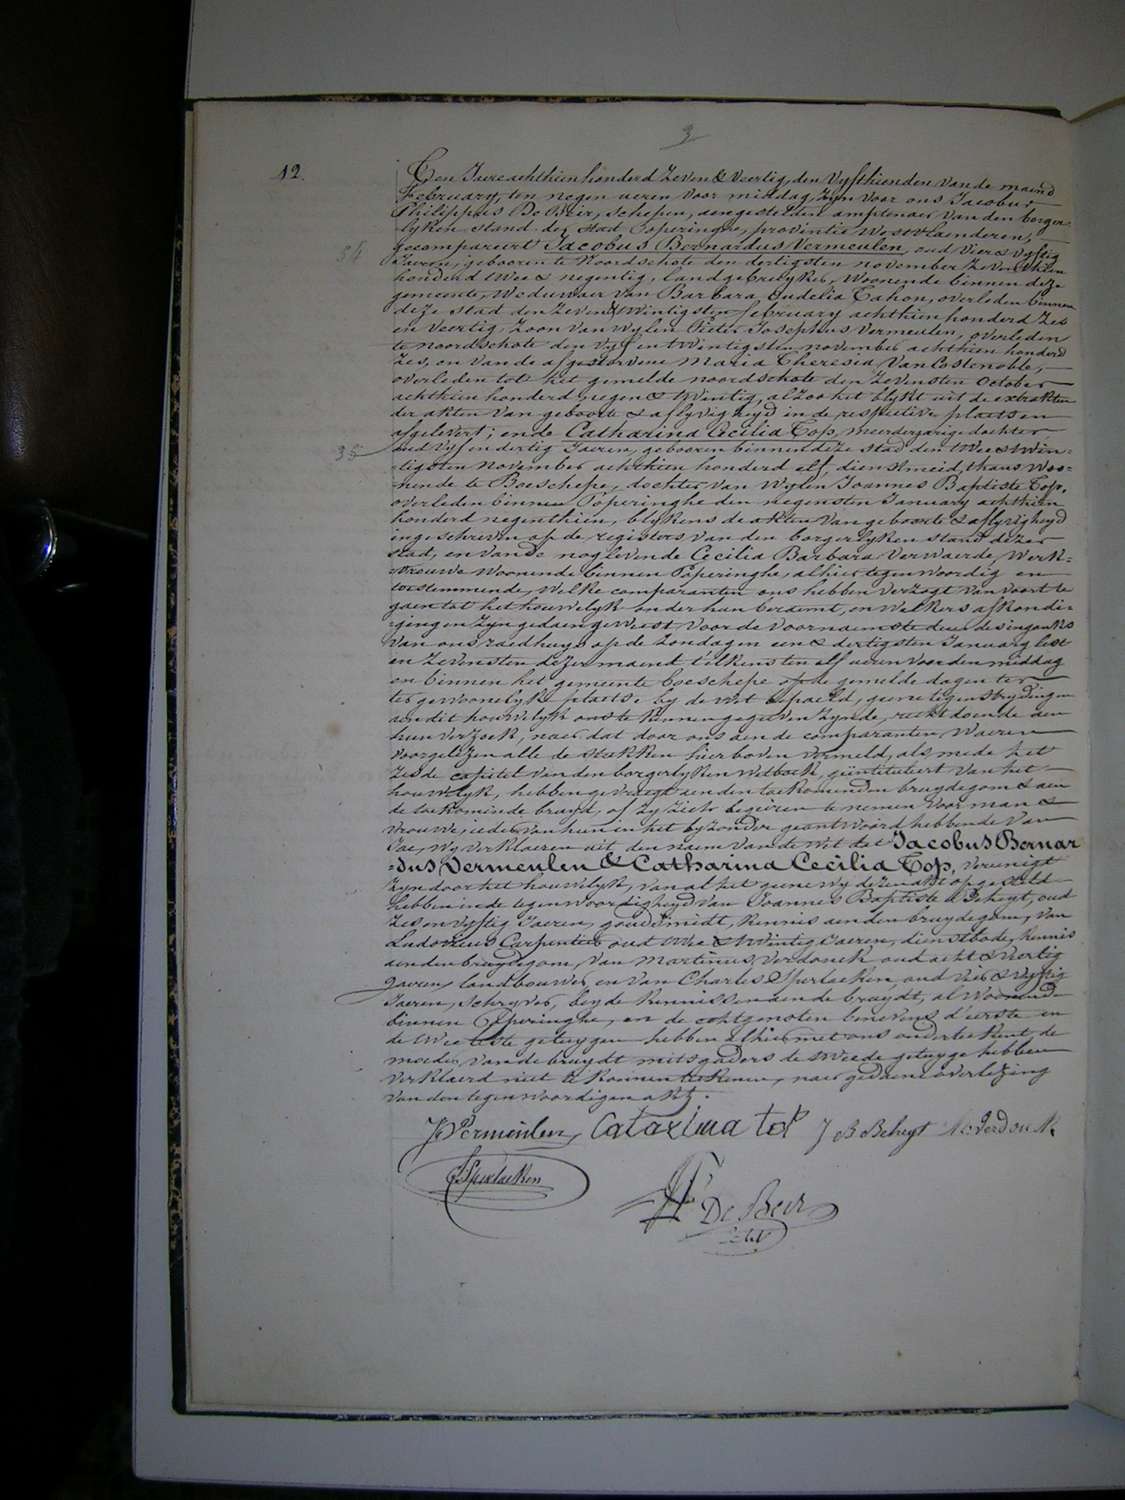 3
12.
Ten Jaere achthien honderd Zeven & Veertig, den Vyfthienden van de maend
February, ten negen ueren voor middag, Zyn voor ons Jacobus
Philippus De Beir, schepen, aengestelden amptenaer van den borger-
lyken stand der stad Poperinghe, provintie Westvlaenderen,
34
gecompareert Jacobus Bernardus Vermeulen, oud vier & vyftig
Jaeren, gebooren te Noordschote den dertigsten november Zeventhien
honderd twee & negentig, landgebruyker, Woonende binnen deze
gemeente, Weduwaer van Barbara Eudelia Cahon, overleden binnen
deze stad den Zeven & twintigsten february achthien honderd Zes
en Veertig, Zoon van wylen Pieter Josephus Vermeulen, overleden
te Noordschote den vyf en twintigsten november achthien honderd
Zes, en van de afgestorvene Maria Theresia Van Costenoble,
overleden tot het gemelde noordschote den Zevensten October
achthien honderd negen & twintig, alzoo het blykt uit de extrakten
der akten van geboorte & aflyvigheyd in de respective plaetsen
afgelevert; en de Catharina Cecilia Top, meerderjarige dochter
35
oud vyf en dertig Jaeren, gebooren binnen deze stad den twee & twin-
tigsten november achthien honderd elf, dienstmeid, thans woo-
nende te Boeschepe, dochter van wylen Joannes Baptiste Top,
overleden binnen Poperinghe den negensten January achthien
honderd negenthien, blykens de akten van geboorte & aflyvigheyd
ingeschreven op de registers van den borgerlyken stand dezer
stad, en van de nog levende Cecilia Barbara Verwaerde, Werk-
vrouwe Woonende binnen Poperinghe, alhier tegenwoordig en
toestemmende, Welke comparanten ons hebben verzogt van voort te
gaen tot het houwelyk onder hun beraemt, en welkers afkondi-
gingen zyn gedaen geweest voor de voornaemste deure des ingangs
van ons raedhuys op de Zondagen een & dertigsten January lest
en Zevensten dezer maend t'elkens ten elf ueren voor den middag
en binnen het gemeente boeschepe op de gemelde dagen ter
ter gewoonelyke plaetse by de wet bepaeld, geene tegenstrydingen
aen dit houwelyk ons te kennen gegeven zynde, recht doende aen
hun verzoek, naer dat door ons aen de comparanten Waeren
voorgelezen alle de stukken hier boven vermeld, als mede het
Zesde capitel van den borgerlyken Wetboek, geintituleert van het
houwelyk, hebben gevraegt aen den toekomenden bruydegom & aen
de toekomende bruyd, of zy zich begeiren te nemen voor man &
vrouwe, ieder van hun in het byzonder geantwoord hebbende van
Jae, wy verklaeren uit den naem van de wet dat Jacobus Bernar
dus Vermeulen & Catharina Cecilia Top, vereenigt
zyn door het houwelyk, van al het geene wy dezen akt opgesteld
hebben in de tegenwoordigheyd van Joannes Baptiste Beheyt, oud
Zes en vyftig Jaeren, goudsmidt, kennis aen den bruydegom, van
Ludovicus Carpentier oud twee & twintig Jaeren, dienstbode, kennis
aen den bruydegom, van Martinus Verdonck oud acht & veertig
Jaeren, landbouwer, en van Charles Sperlaeken, oud vier & vyftig
Jaeren, schryver, beyde kennissen aen de bruydt, al woonende
binnen Poperinghe, en de echtgenoten benevens d'eerste en
de twee leste getuygen hebben alhier met ons onderteekent, de
moeder van de bruydt mitsgaders de tweede getuyge hebben
verklaerd niet te konnen teekenen, naer gedaene overlezing
van den tegenwoordigen akt.
JB Vermeulen Catarina top J B Beheyt M: Verdonck
C. Sperlaeken
JP De Beir